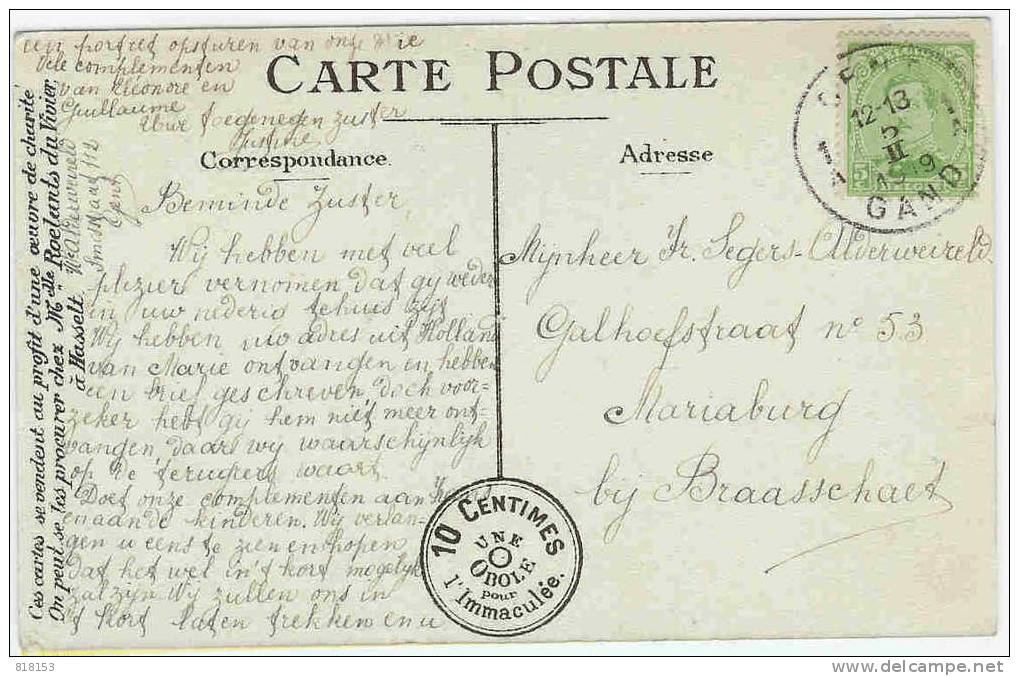 CARTE POSTALE
Correspondance.
Adresse
Beminde Zuster
Wij hebben met veel
plezier vernomen dat gij weder
in uw nederig tehuis zijt
Wij hebben uw adres uit Holland
van Marie ontvangen en hebben
een brief geschreven doch voor-
zeker hebt gij hem niet meer ont-
vangen, daar wij waarschijnlijk
op de terugreis waart
Doet onze complementen aan
en aan de kinderen. Wij verlan-
gen u eens te zien en hopen
dat het wel in 't kort mogelijk
zal zijn. Wij zullen ons in
't kort laten trekken en u
een portret opsturen van onze drie
Vele complementen
van Leonore en
Guillaume
Uwe toegenegen zuster
Justine
Gent
Mijnheer Fr. Segers-Alderweireld
Galhoefstraat n° 53
Mariaburg
bij Braasschaet
Ces cartes se vendent au profit d'une œuvre de charité
On peut se les procurer chez Melle Roelants du Vivier,
à Hasselt.
10 CENTIMES
UNE
OBOLE
pour
l'Immaculée.
GENT
12-13
5
II
1919
GAND
5
818153
delcampe.net